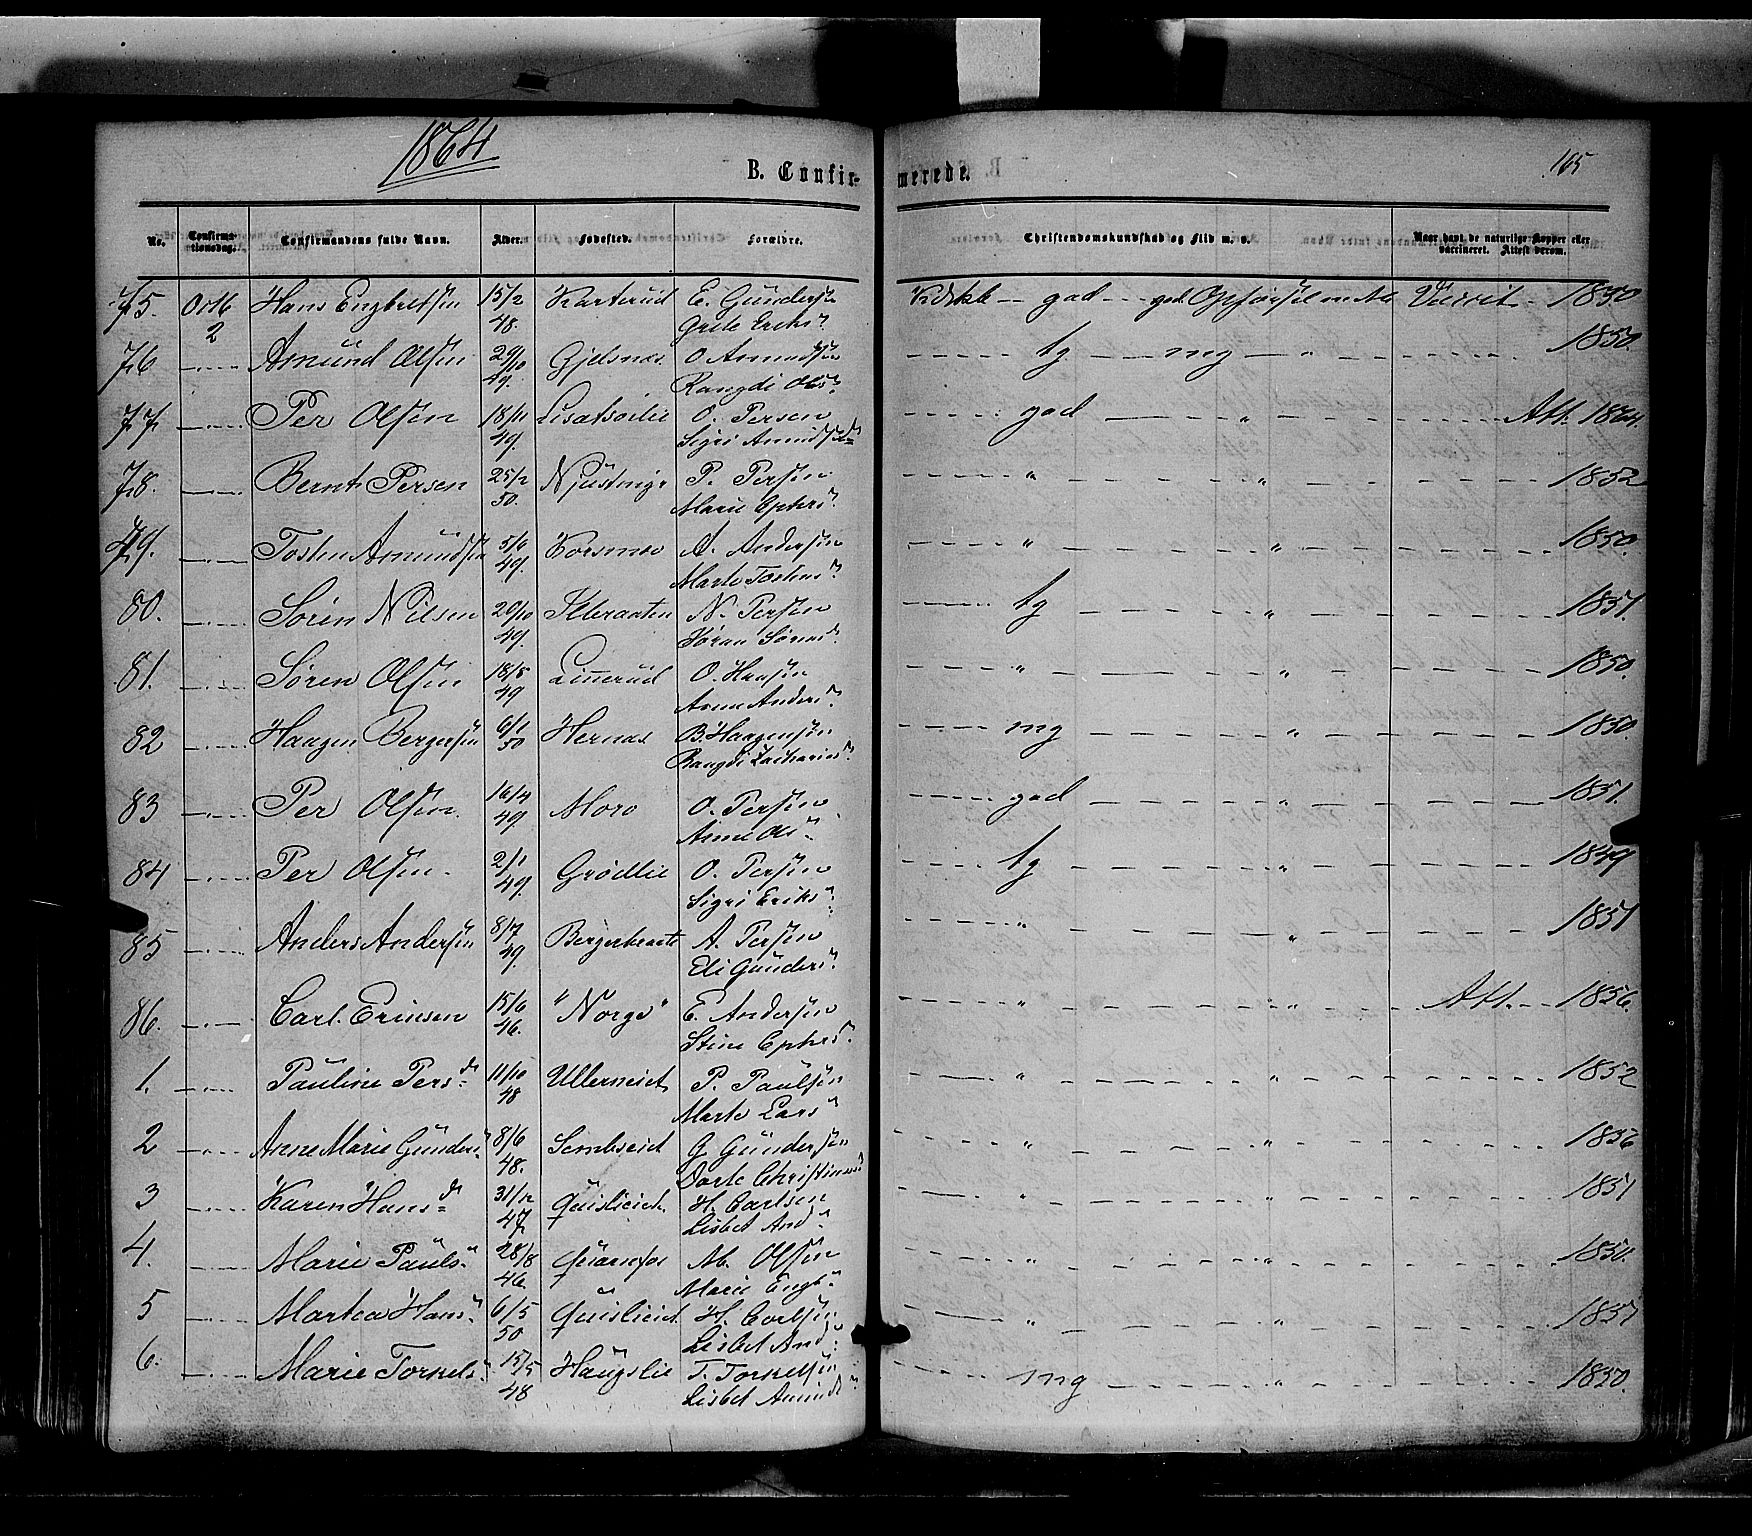 1864
B. Confir- merede.
165
No. Confirma-tionsdag. Confirmandens fulde Navn. Alder. Fødested. Forældre. Christendomskundskab og Flid m. v. Naar havt de naturlige Kopper eller vaccineret. Attest derom.
75. Octb 2 Hans Engbretsen 15/2 48. Karterud E. Gunders Grete Eriks Kdskb god god Opførsel 1850
76 Amund Olsen 29/10 49. Gjelsnes O Amundsen Rangdi Ols tg mg " 1850.
77 Per Olsen 18/11 49. O. Persen Sigri Amunds god " Att. 1864.
78. Bernt Persen 25/2 50. P. Persen Marie Ephrs " " 1852
79. Tosten Amundsen 5/6 49. Korsmo A. Andersen Marte Tostens " " 1850.
80. Søren Nilsen 20/10 49. N. Persen Søren tg " 1851.
81. Søren Olsen 18/5 49 Linnerud O. Hansen Anne Anders " " 1850.
82 Haagen Bergersen 6/1 50 Hernes B. Haagensen Rangdi Zacharias mg " 1850.
83 Per Olsen. 16/4 49. Moro O. Persen Anne Ols god " 1851.
84 Per Olsen. 2/1 49. Grødlie O. Persen Sigri Eriks tg " 1849
85 Anders Andersen 8/7 49. Bergerbraate A. Persen Eli Gunders " " 1851
86. Carl Erinsen 15/6 46. "Norge" E. Andersen Stine Ephrs " " Att. 1856.
1. Pauline Pers d 11/10 48 Ullerneiet P. Paulsen Marte Lars " " 1852
2 Anne Marie Gunders 8/6 48. Sembseiet G Gundersen Dorte Christians " " 1856
3 Karen Hans d 31/12 47 Quislieiet H. Carlsen Lisbet And " " 1851
4. Marie Pauls 28/8 46. Quarnfos Olsen Marie Engb " " 1850.
5 Martea Hans 6/5 50 Quislieiet H. Carlsen Lisbet And " " 1857
6. Marie Torkels 15/5 48 Haugslie T. Torkelsen Lisbet Amunds mg " 1850.